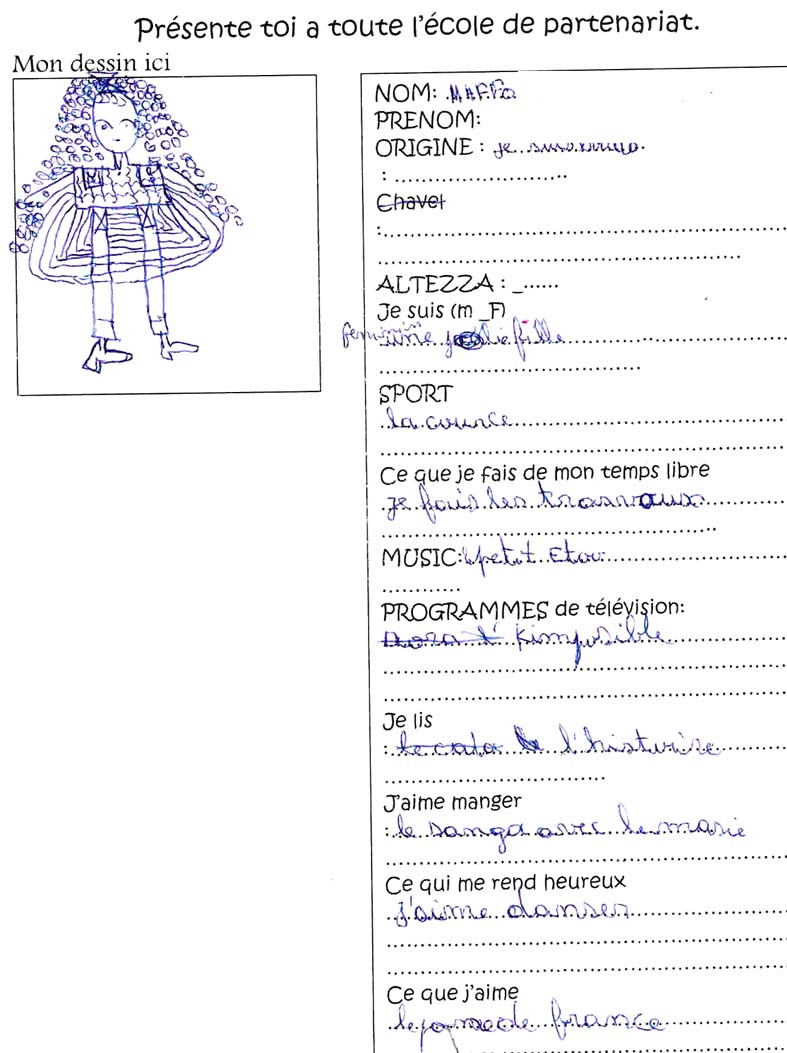 Présente toi a toute l'école de partenariat.
Mon dessin ici
NOM: MAFFO
PRENOM:
ORIGINE : je
: ..........................
Chavel
:
ALTEZZA : _......
Je suis (m _F)
feminin une jolie fille
SPORT
la cource
Ce que je fais de mon temps libre
je fais les travaux
MUSIC: petit Etou
PROGRAMMES de télévision:
dora kimposible
Je lis
: l'histurize
J'aime manger
: le sanga avec le marie
Ce qui me rend heureux
j'aime danser
Ce que j'aime
france